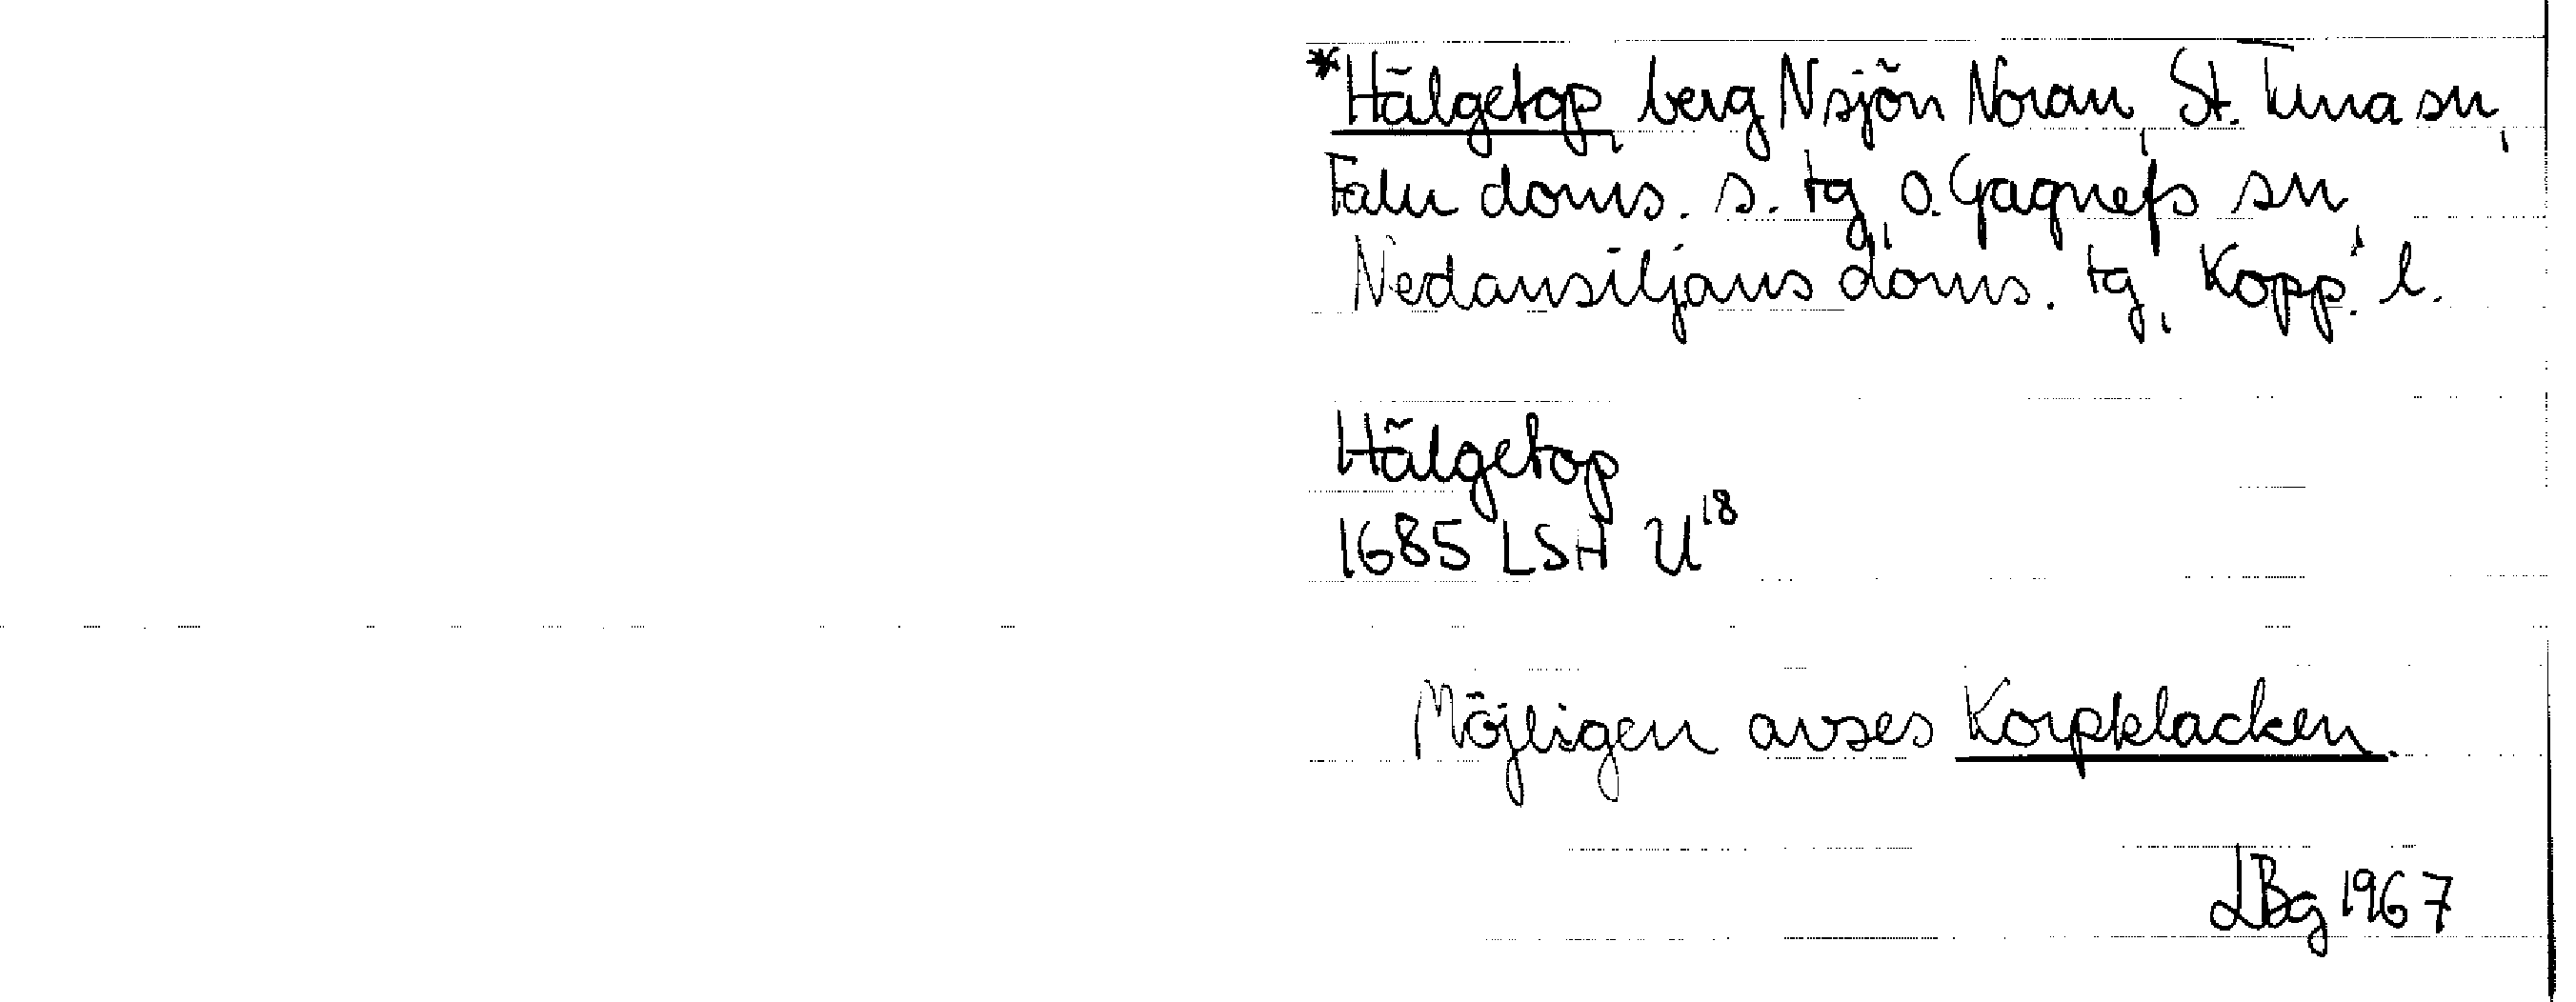 *Hälgetop, berg N sjön Noran, St. Tuna sn,
Falu doms. s. tg, o. Gagnefs sn,
Nedansiljans doms. tg, Kopp. l.
Hälgetop
1685 LSH U18
Möjligen avses Korpklacken.
LBg 1967